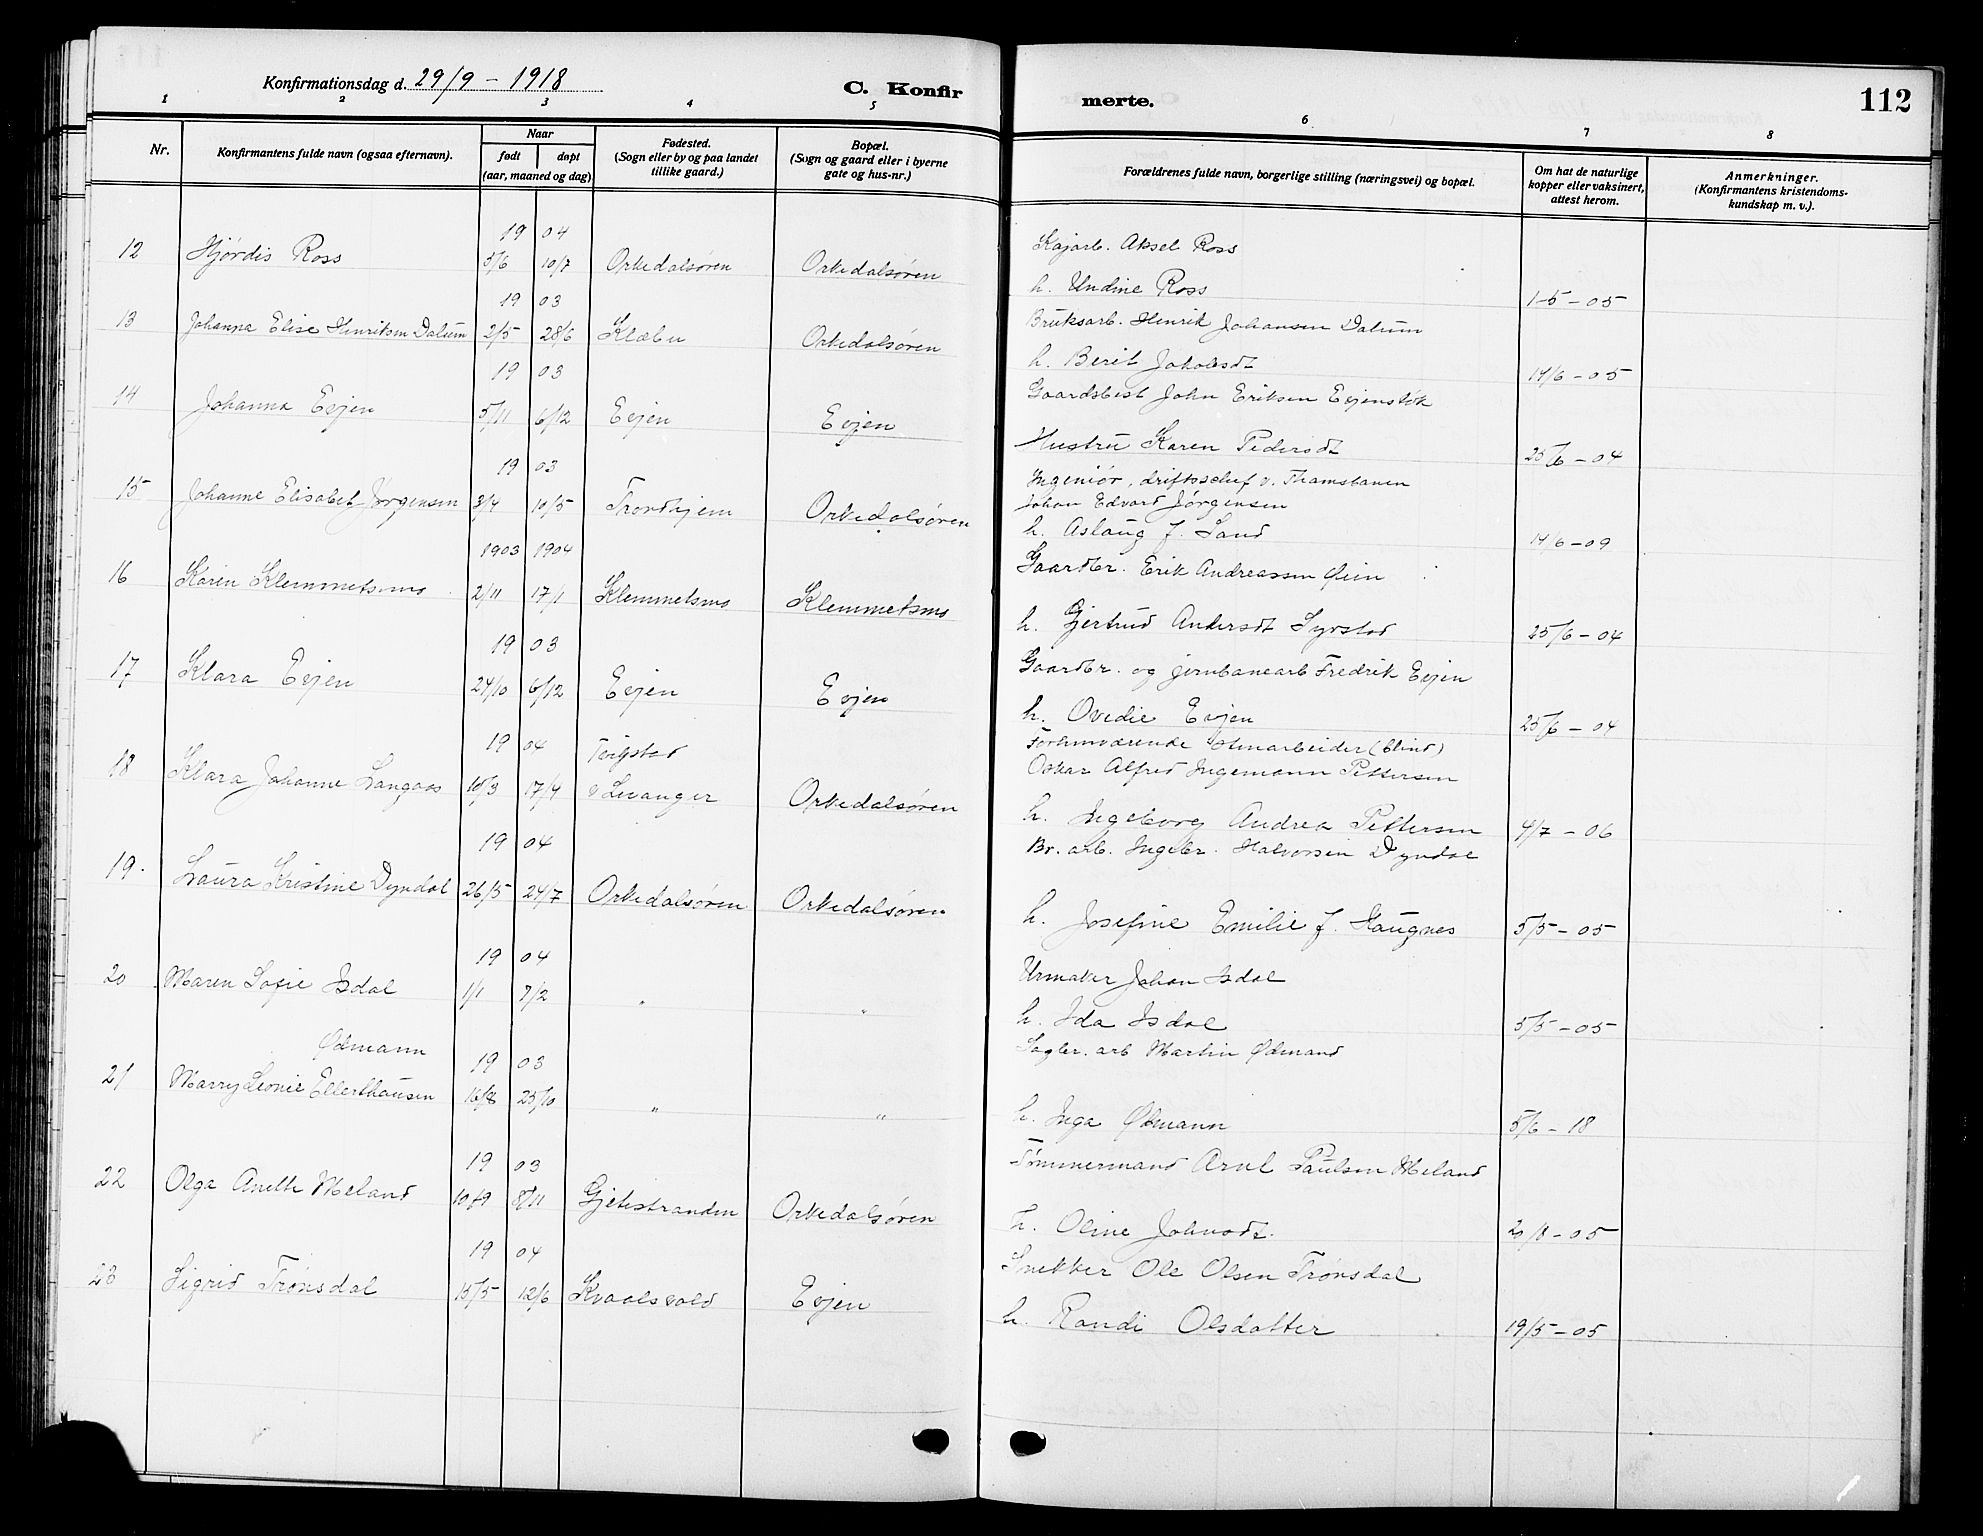 Konfirmationsdag d. 29/9 - 1918
C. Konfir
merte.
112
1 2 3 4 5 6 7 8
Nr.
Konfirmantens fulde navn (ogsaa efternavn).
Naar
født døpt
(aar, maaned og dag)
Fødested.
(Sogn eller by og paa landet
tillike gaard.)
Bopæl.
(Sogn og gaard eller i byerne
gate og hus-nr.)
Forældrenes fulde navn, borgerlige stilling (næringsvei) og bopæl.
Om hat de naturlige
kopper eller vaksinert,
attest herom.
Anmerkninger.
(Konfirmantens kristendoms-
kundskap m. v.).
19 04
12 Hjørdis Ross 5/6 10/7 Orkedalsøren Orkedalsøren
Kajarb. Aksel Ross
h. Undine Ross 1-5-05
19 03
13 Johanna Elise Henriksen Dalum 2/5 28/6 Klæbu Orkedalsøren
Bruksarb. Henrik Johansen Dalum
h. Berit 14/6-05
19 03
14 Johanna Evjen 5/11 6/12 Evjen Evjen
Gaardbest John Eriksen
Hustru Karen Pedersdt 25/6-04
19 03
15 Johanne Elisabet Jørgensen 3/4 10/5 Trondhjem Orkedalsøren
Ingeniør, driftschef v. Thamsbanen
Johan Edvard Jørgensen
h. Aslaug J. Sand 14/6-09
1903 1904
16 Karen Klemmetsmo 2/11 17/1 Klemmetsmo Klemmetsmo
Gaardbr. Erik Andreassen Øien
h. Gjertrud Andersdt Syrstad 25/6-04
19 03
17 Klara Evjen 24/10 6/12 Evjen Evjen
Gaardbr. og jernbanearb Fredrik Evjen
h. Ovedie Evjen 25/6-04
19 04
18 Klara Johanne Langaas 10/3 17/4
v Levanger Orkedalsøren
Forhenværende stenarbeider (blind)
Oskar Alfred Ingemann Pettersen
h. Ingeborg Andrea Pettersen 4/7-06
19 04
19. Laura Kristine Dyndal 26/5 24/7 Orkedalsøren Orkedalsøren
Br. arb. Ingebr. Halvorsen Dyndal
h. Josefine Emilie J. Haugnes 5/5-05
19 04
20 Maren Sofie Isdal 1/1 7/2 " "
Urmaker Johan Isdal
h. Ida Isdal 5/5-05
Ødmann 19 03
21 Marry Leonie Ellerthausen 16/8 25/10 " "
Sagbr. arb Martin Ødmand
h. Inga Ødmann 5/6-18
19 03
22 Olga Anette Meland 10/9 8/11 Gjetestranden Orkedalsøren
Tømmermand Arnt Paulsen Meland
h. Oline Johnsdt. 2/8-05
19 04
23 Sigrid Trønsdal 15/5 12/6 Kvaalsvold Evjen
Snekker Ole Olsen Trønsdal
h. Randi Olsdatter 19/5-05